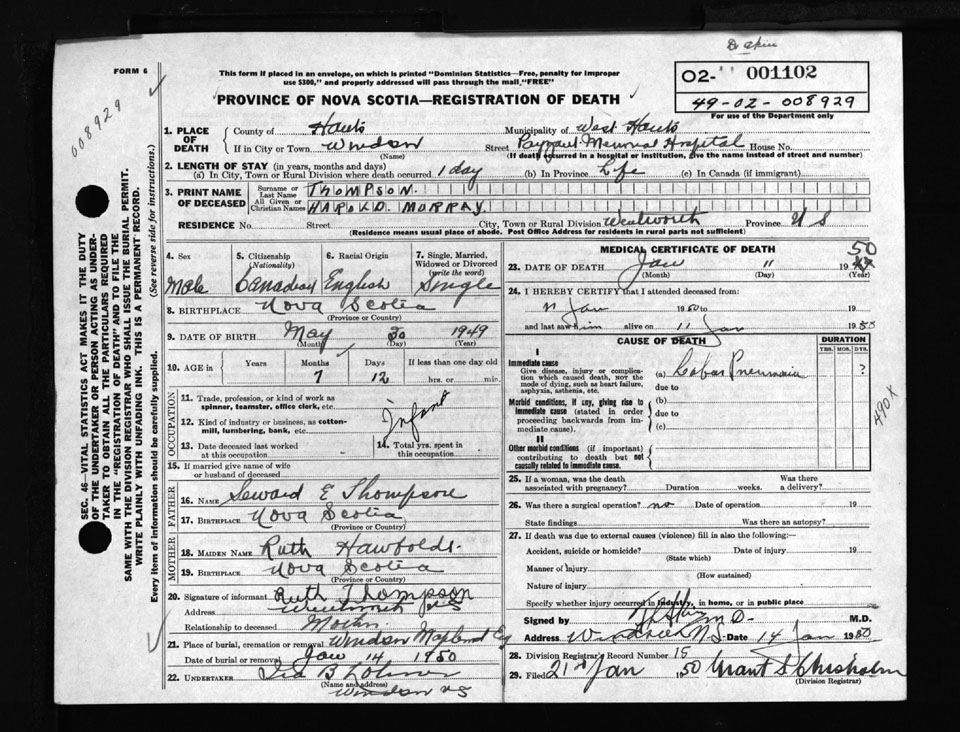 FORM 6
008929
This form if placed in an envelope, on which is printed "Dominion Statistics—Free, penalty for improper
use $300," and properly addressed will pass through the mail "FREE"
PROVINCE OF NOVA SCOTIA—REGISTRATION OF DEATH
O2- 001102
49-02-008929
For use of the Department only
SEC. 46—VITAL STATISTICS ACT MAKES IT THE DUTY
OF THE UNDERTAKER OR PERSON ACTING AS UNDER-
TAKER TO OBTAIN ALL THE PARTICULARS REQUIRED
IN THE "REGISTRATION OF DEATH" AND TO FILE THE
SAME WITH THE DIVISION REGISTRAR WHO SHALL ISSUE THE BURIAL PERMIT.
WRITE PLAINLY WITH UNFADING INK. THIS IS A PERMANENT RECORD.
Every item of information should be carefully supplied. (See reverse side for instructions.)
1. PLACE OF DEATH
County of Hants Municipality of West Hants
If in City or Town Windsor Street Payzant Memorial Hospital House No.
(Name) (If death occurred in a hospital or institution, give the name instead of street and number)
2. LENGTH OF STAY (in years, months and days)
(a) In City, Town or Rural Division where death occurred 1 day (b) In Province Life (c) In Canada (if immigrant)
3. PRINT NAME OF DECEASED
Surname or Last Name THOMPSON.
All Given or Christian Names HAROLD MURRAY.
RESIDENCE No. Street City, Town or Rural Division Wentworth Province N S
(Residence means usual place of abode. Post Office Address for residents in rural parts not sufficient)
4. Sex 5. Citizenship (Nationality) 6. Racial Origin 7. Single, Married, Widowed or Divorced (write the word)
Male Canadian English Single
8. BIRTHPLACE Nova Scotia
(Province or Country)
9. DATE OF BIRTH May 30 1949
(Month) (Day) (Year)
10. AGE in Years Months Days If less than one day old
7 12 hrs. or min.
OCCUPATION
11. Trade, profession, or kind of work as
spinner, teamster, office clerk, etc.
12. Kind of industry or business, as cotton-
mill, lumbering, bank, etc. Infant
13. Date deceased last worked at this occupation
14. Total yrs. spent in this occupation
15. If married give name of wife
or husband of deceased
FATHER
16. NAME Seward E Thompson
17. BIRTHPLACE Nova Scotia
(Province or Country)
MOTHER
18. MAIDEN NAME Ruth Hawbolds.
19. BIRTHPLACE Nova Scotia
(Province or Country)
20. Signature of informant Ruth Thompson
Address Wentworth NS
Relationship to deceased Mother
21. Place of burial, cremation or removal Windsor
Date of burial or removal Jan 14 1950
22. UNDERTAKER Ira B
(Name and address)
Windsor NS
MEDICAL CERTIFICATE OF DEATH
23. DATE OF DEATH Jan 11 19 50
(Month) (Day) (Year)
24. I HEREBY CERTIFY that I attended deceased from:
11 Jan 1950 to 19
and last saw him alive on 11 Jan 1950
CAUSE OF DEATH DURATION
YRS. MOS. DYS.
I
Immediate cause
Give disease, injury or complica-
tion which caused death, NOT the
mode of dying, such as heart failure,
asphyxia, asthenia, etc.
(a) Lobar Pneumonia ?
due to
Morbid conditions, if any, giving rise to
immediate cause (stated in order
proceeding backwards from im-
mediate cause).
(b)
due to
(c)
490X
II
Other morbid conditions (if important)
contributing to death but not
causally related to immediate cause.
25. If a woman, was the death
associated with pregnancy? Duration weeks. Was there a delivery?
26. Was there a surgical operation? no Date of operation 19
State findings Was there an autopsy?
27. If death was due to external causes (violence) fill in also the following:—
Accident, suicide or homicide? Date of injury 19
(State which)
Manner of injury
(How sustained)
Nature of injury
Specify whether injury occurred in industry, in home, or in public place
Signed by M.D. M.D.
Address Windsor N.S. Date 14 Jan 1950
28. Division Registrar's Record Number 15
29. Filed 21st Jan 1950 Grant S Chisholm
(Division Registrar)